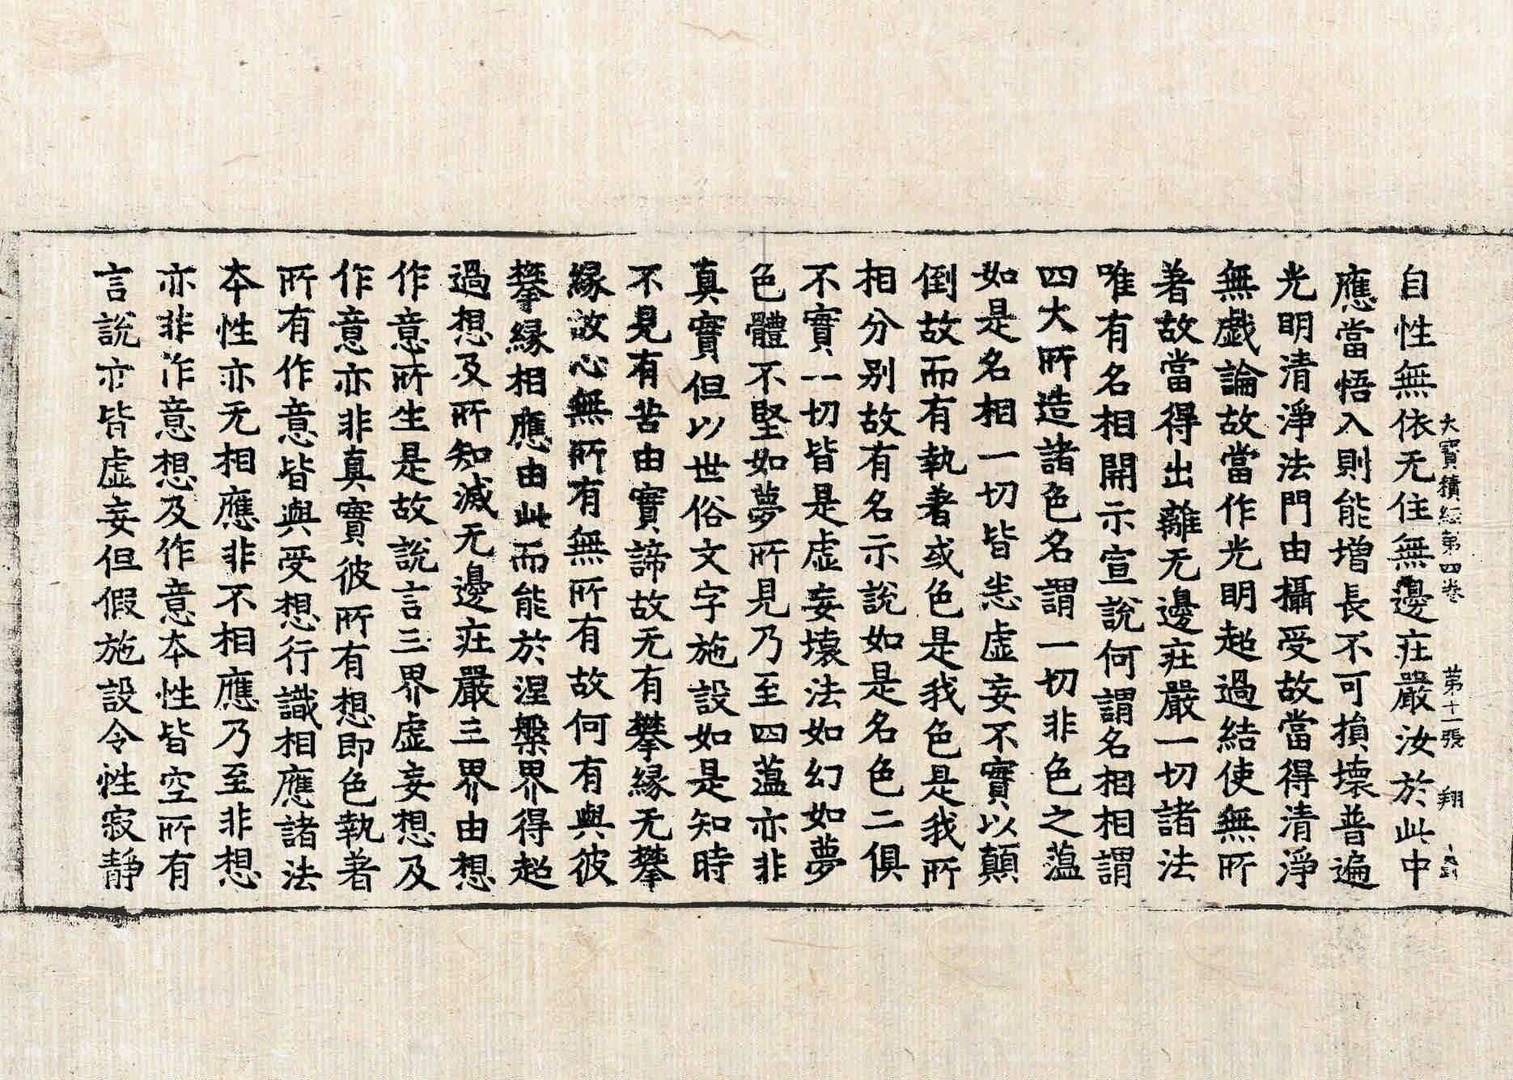 大寶積經第四卷 第十一張 翔
自性無依无住無邊莊嚴汝於此中
應當悟入則能增長不可損壞普遍
光明清淨法門由攝受故當得清淨
無戲論故當作光明超過結使無所
著故當得出離无邊莊嚴一切諸法
唯有名相開示宣說何謂名相相謂
四大所造諸色名謂一切非色之蘊
如是名相一切皆悉虛妄不實以顛
倒故而有執著或色是我色是我所
相分別故有名示說如是名色二俱
不實一切皆是虛妄壞法如幻如夢
色體不堅如夢所見乃至四蘊亦非
真實但以世俗文字施設如是知時
不見有苦由實諦故无有攀緣无攀
緣故心無所有無所有故何有與彼
攀緣相應由此而能於涅槃界得超
過想及所知滅无邊莊嚴三界由想
作意所生是故說言三界虛妄想及
作意亦非真實彼所有想即色執著
所有作意皆與受想行識相應諸法
本性亦无相應非不相應乃至非想
亦非作意想及作意本性皆空所有
言說亦皆虛妄但假施設令性寂靜